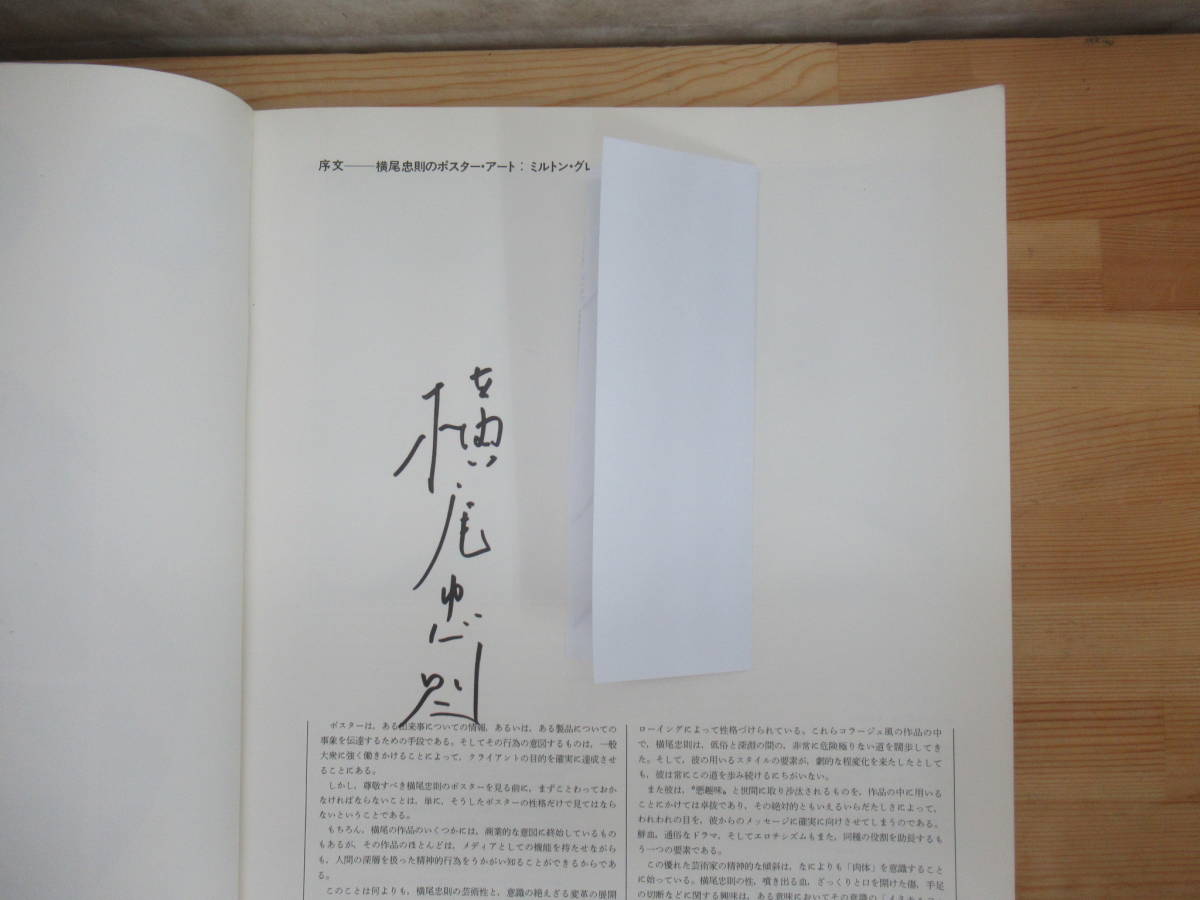 序文——横尾忠則のポスター・アート：ミルトン・グレ
横尾忠則
ポスターは，ある出来事についての情報，あるいは，ある製品についての
事象を伝達するための手段である。そしてその行為の意図するものは，一般
大衆に強く働きかけることによって，クライアントの目的を確実に達成させ
ることにある。
しかし，尊敬すべき横尾忠則のポスターを見る前に，まずことわっておか
なければならないことは，単に，そうしたポスターの性格だけで見てはなら
ないということである。
もちろん，横尾の作品のいくつかには，商業的な意図に終始しているもの
もあるが，その作品のほとんどは，メディアとしての機能を持たせながら
も，人間の深層を扱った精神的行為をうかがい知ることができるからであ
る。
このことは何よりも，横尾忠則の芸術性と，意識の絶えざる変革の展開
ローイングによって性格づけられている。これらコラージュ風の作品の中
で，横尾忠則は，低俗と深淵の間の，非常に危険極りない道を闊歩してき
た。そして，彼の用いるスタイルの要素が，劇的な程変化を来たしたとして
も，彼は常にこの道を歩み続けるにちがいない。
また彼は，〝悪趣味〟と世間に取り沙汰されるものを，作品の中に用いる
ことにかけては卓抜であり，その絶対的ともいえるいらだたしさによって，
われわれの目を，彼からのメッセージに確実に向けさせてしまうのである。
鮮血，通俗なドラマ，そしてエロチシズムもまた，同種の役割を助長するも
う一つの要素である。
この優れた芸術家の精神的な傾斜は，なによりも「肉体」を意識すること
に始っている。横尾忠則の性，噴き出る血，ざっくりと口を開けた傷，手足
の切断などに関する興味は，ある意味においてその意識の